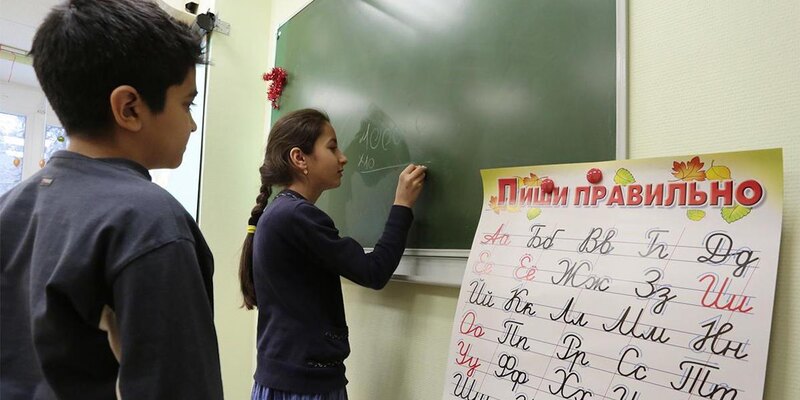 1000
10
Пиши правильно
Аа Бб Вв Гг Дд
Ее Ёё Жж Зз Ии
Йй Кк Лл Мм Нн
Оо Пп Рр Сс Тт
Уу Фф Хх
Шш